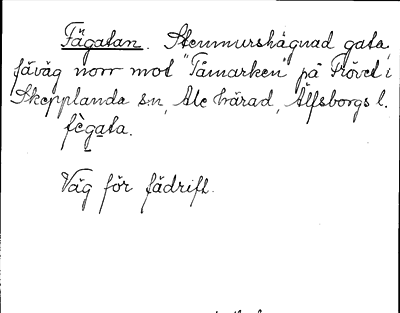 Fägatan. Stenmurshägnad gata,
fäväg norr mot "Tåmarken" på Prövet i
Skepplanda sn, Ale härad, Älfsborgs l.
fègata.
Väg för fädrift.